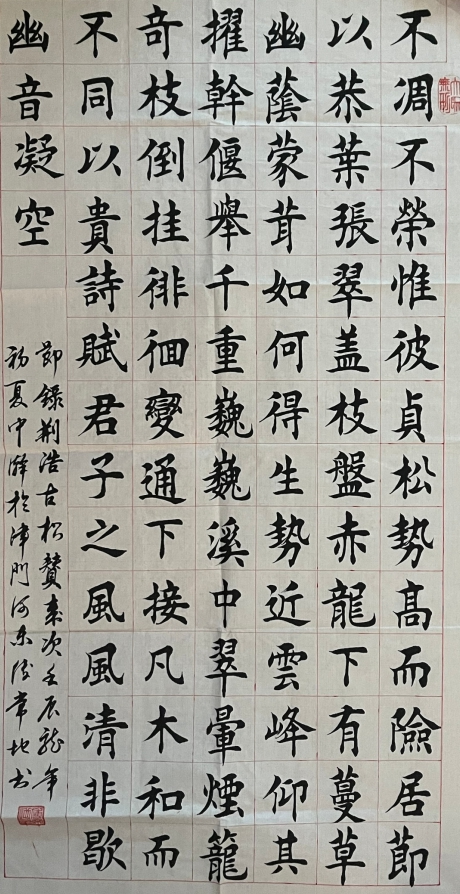 不凋不榮惟彼貞松勢髙而險居節
以恭葉張翠盖枝盤赤龍下有蔓草
幽蔭蒙茸如何得生勢近雲峰仰其
擢幹偃舉千重巍巍溪中翠暈煙籠
奇枝倒挂徘徊變通下接凡木和而
不同以貴詩賦君子之風風清非歇
幽音凝空
節錄荆浩古松贊次壬辰龍年
初夏中澣於津門河東常地书